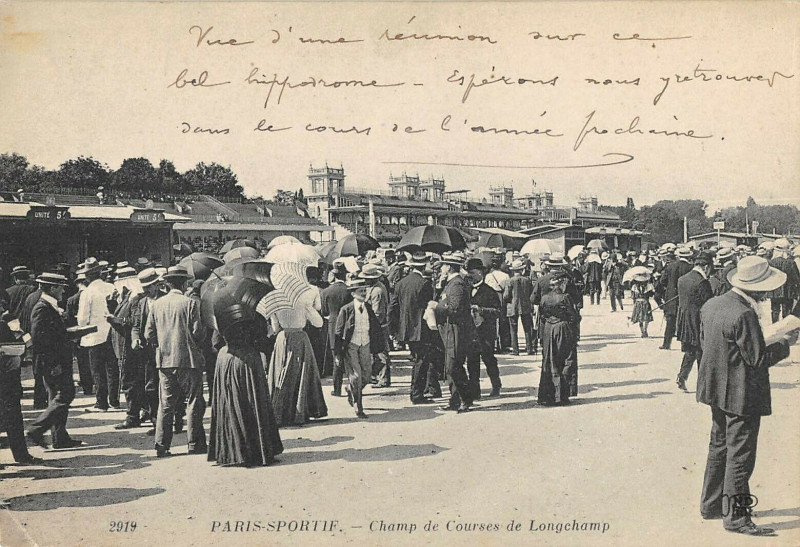 Vue d'une réunion sur ce
bel hippodrome - Espérons nous y retrouver
dans le cours de l'année prochaine.
UNITÉ 5f
UNITÉ 5f
2919 - PARIS-SPORTIF. - Champ de Courses de Longchamp
ND